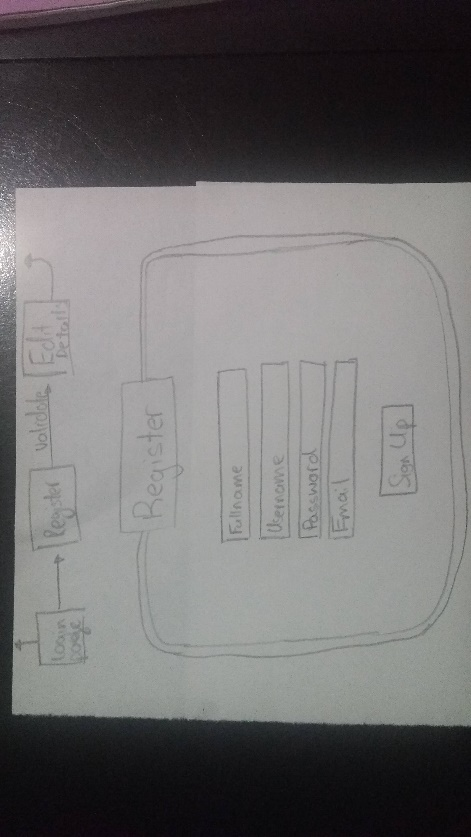 Login
page
Register
validate
Edit
Details
Register
Fullname
Username
Password
Email
Sign Up